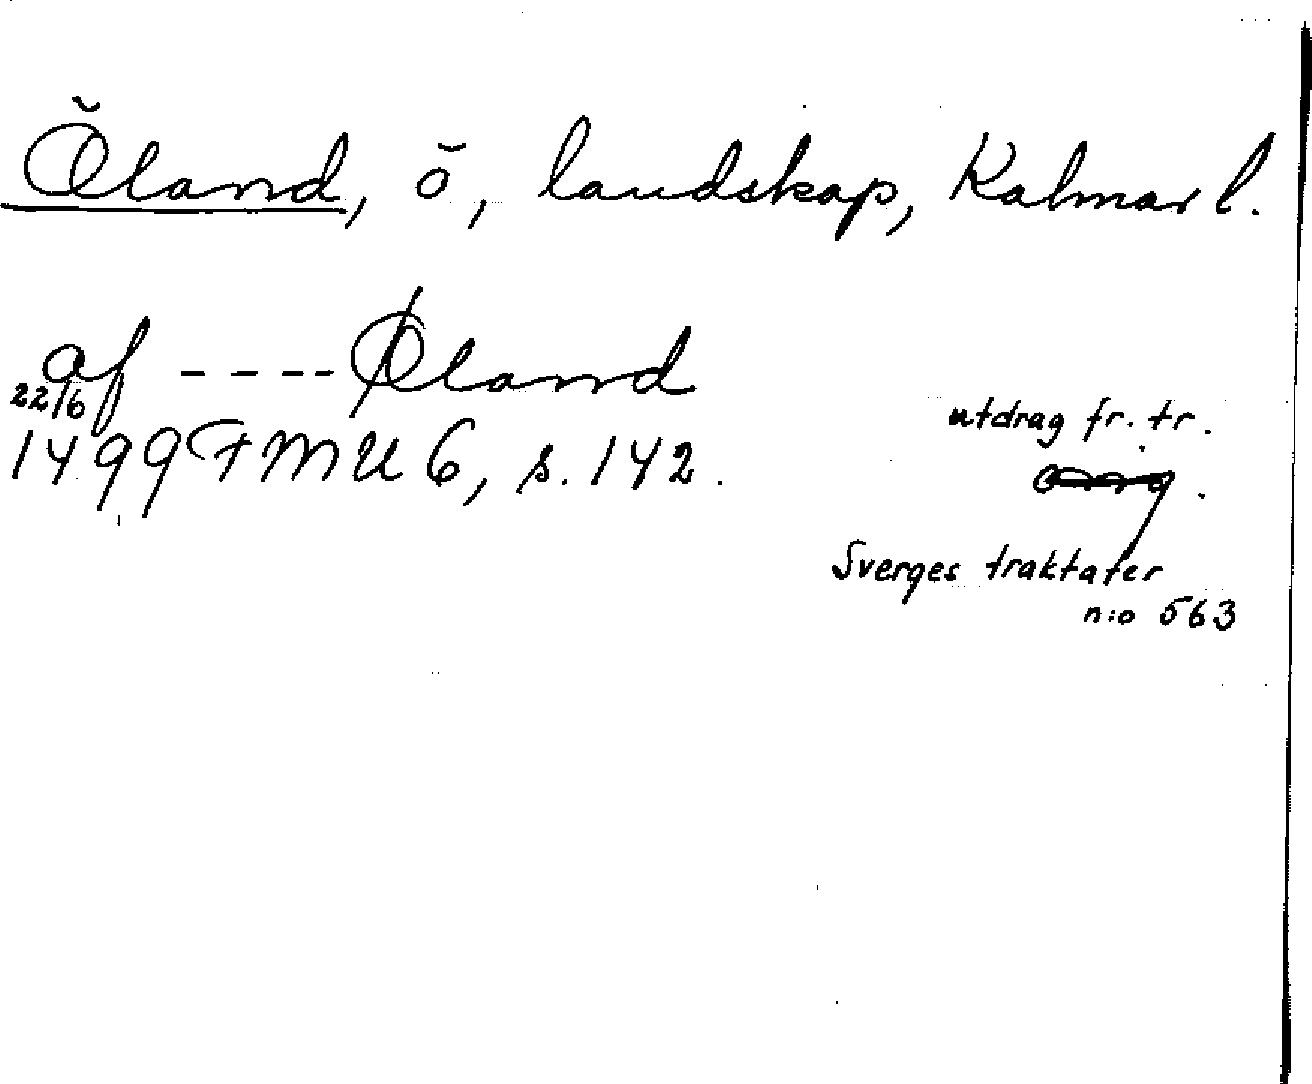 Öland, ö, landskap, Kalmar l.
af ---- Øland
22/6
1499 FMU 6, s. 142.
utdrag fr. tr.
Sverges traktater
n:o 563